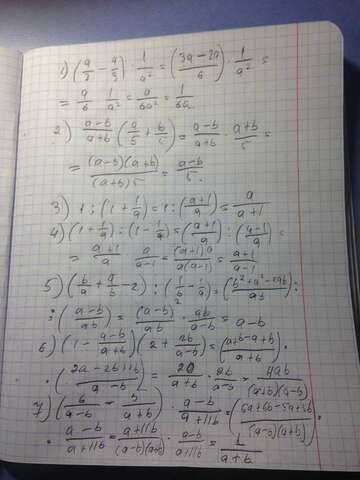 1) (a/2 - a/3) · 1/a² = ((3a-2a)/6) · 1/a² =
= a/6 · 1/a² = a/6a² = 1/6a
2) (a-b)/(a+b) (a/5 + b/5) = (a-b)/(a+b) · (a+b)/5 =
= (a-b)(a+b)/(a+b)5 = (a-b)/5.
3) 1 : (1 + 1/a) = 1 : ((a+1)/a) = a/(a+1)
4) (1 + 1/a) : (1 - 1/a) = ((a+1)/a) : ((a-1)/a) =
= (a+1)/a · a/(a-1) = (a+1)a/a(a-1) = (a+1)/(a-1)
5) (b/a + a/b - 2) : (1/b - 1/a) = ((b²+a²-2ab)/ab) :
: ((a-b)/ab) = (a-b)²/ab · ab/(a-b) = a-b
6) (1 - (a-b)/(a+b)) (2 + 2b/(a-b)) = ((a+b-a+b)/(a+b)) ·
· ((2a-2b+2b)/(a-b)) = 2a/(a+b) · 2b/(a-b) = 4ab/(a+b)(a-b)
7) (6/(a-b) - 5/(a+b)) · (a-b)/(a+11b) = ((6a+6b-5a+5b)/(a-b)(a+b)) ·
· (a-b)/(a+11b) = (a+11b)/(a-b)(a+b) · (a-b)/(a+11b) = 1/(a+b)